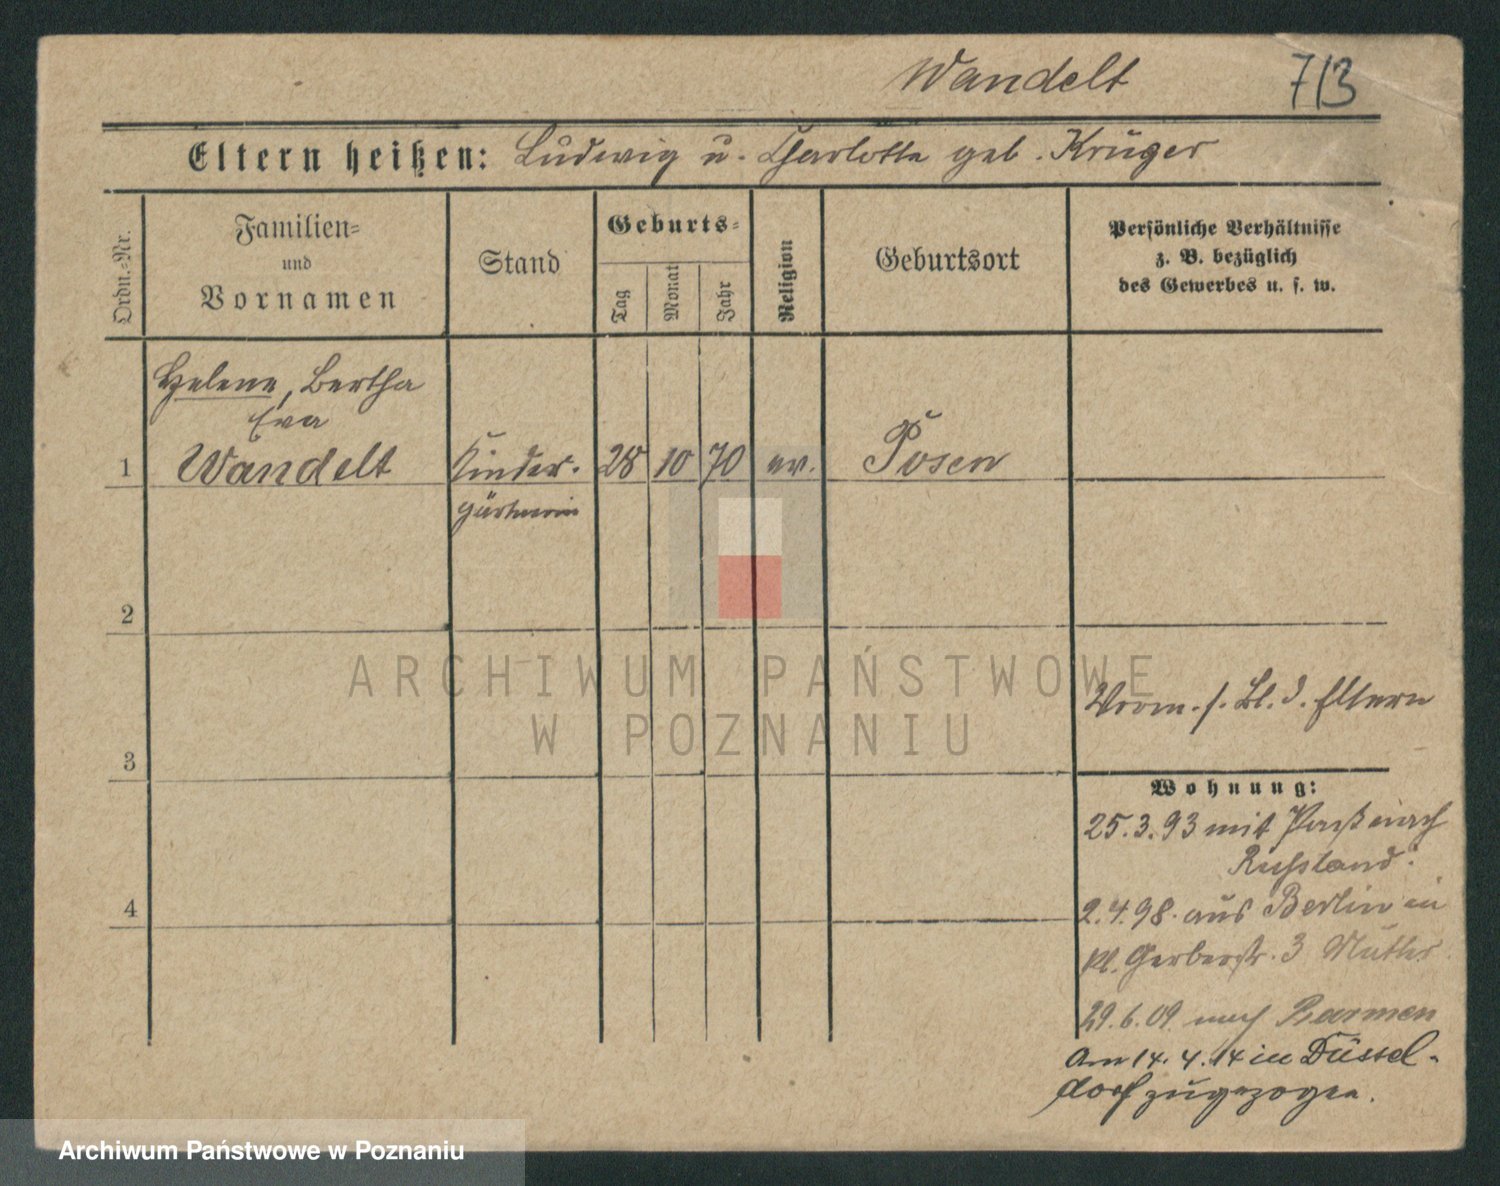 Wandelt 7/3
Eltern heißen: Ludwig u. Charlotte geb. Krüger
Ordn.-Nr.
Familien-
und
Vornamen
Stand
Geburts-
Tag
Monat
Jahr
Religion
Geburtsort
Persönliche Verhältnisse
z. B. bezüglich
des Gewerbes u. s. w.
Helene, Bertha
Eva
1 Wandelt Kinder- 28 10 70 ev. Posen
gärtnerin
2
ARCHIWUM PAŃSTWOWE
W POZNANIU
Vorm. s. Bl. d. Eltern
3
Wohnung:
25.3.93 mit Paß nach
Russland.
4
2.4.98. aus Berlin in
Kl. Gerberstr. 3 Mutter
29.6.09 nach Barmen
Am 14.4.14 in Düssel-
dorf zugezogen.
Archiwum Państwowe w Poznaniu